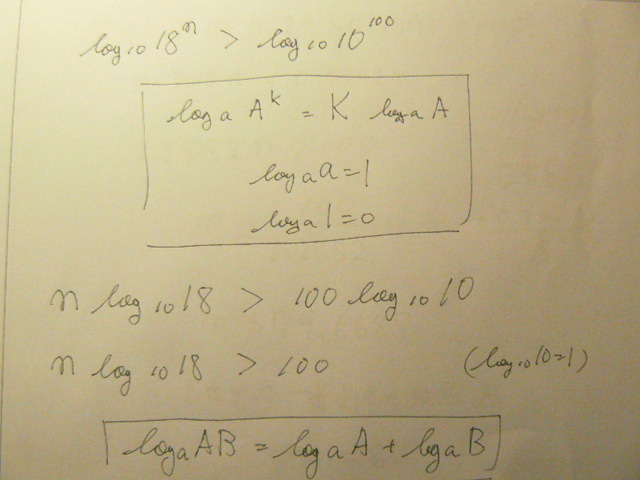 log₁₀ 18ⁿ > log₁₀ 10¹⁰⁰
logₐ Aᵏ = K logₐ A
logₐ a = 1
logₐ 1 = 0
n log₁₀ 18 > 100 log₁₀ 10
n log₁₀ 18 > 100 (log₁₀ 10=1)
logₐ AB = logₐ A + logₐ B